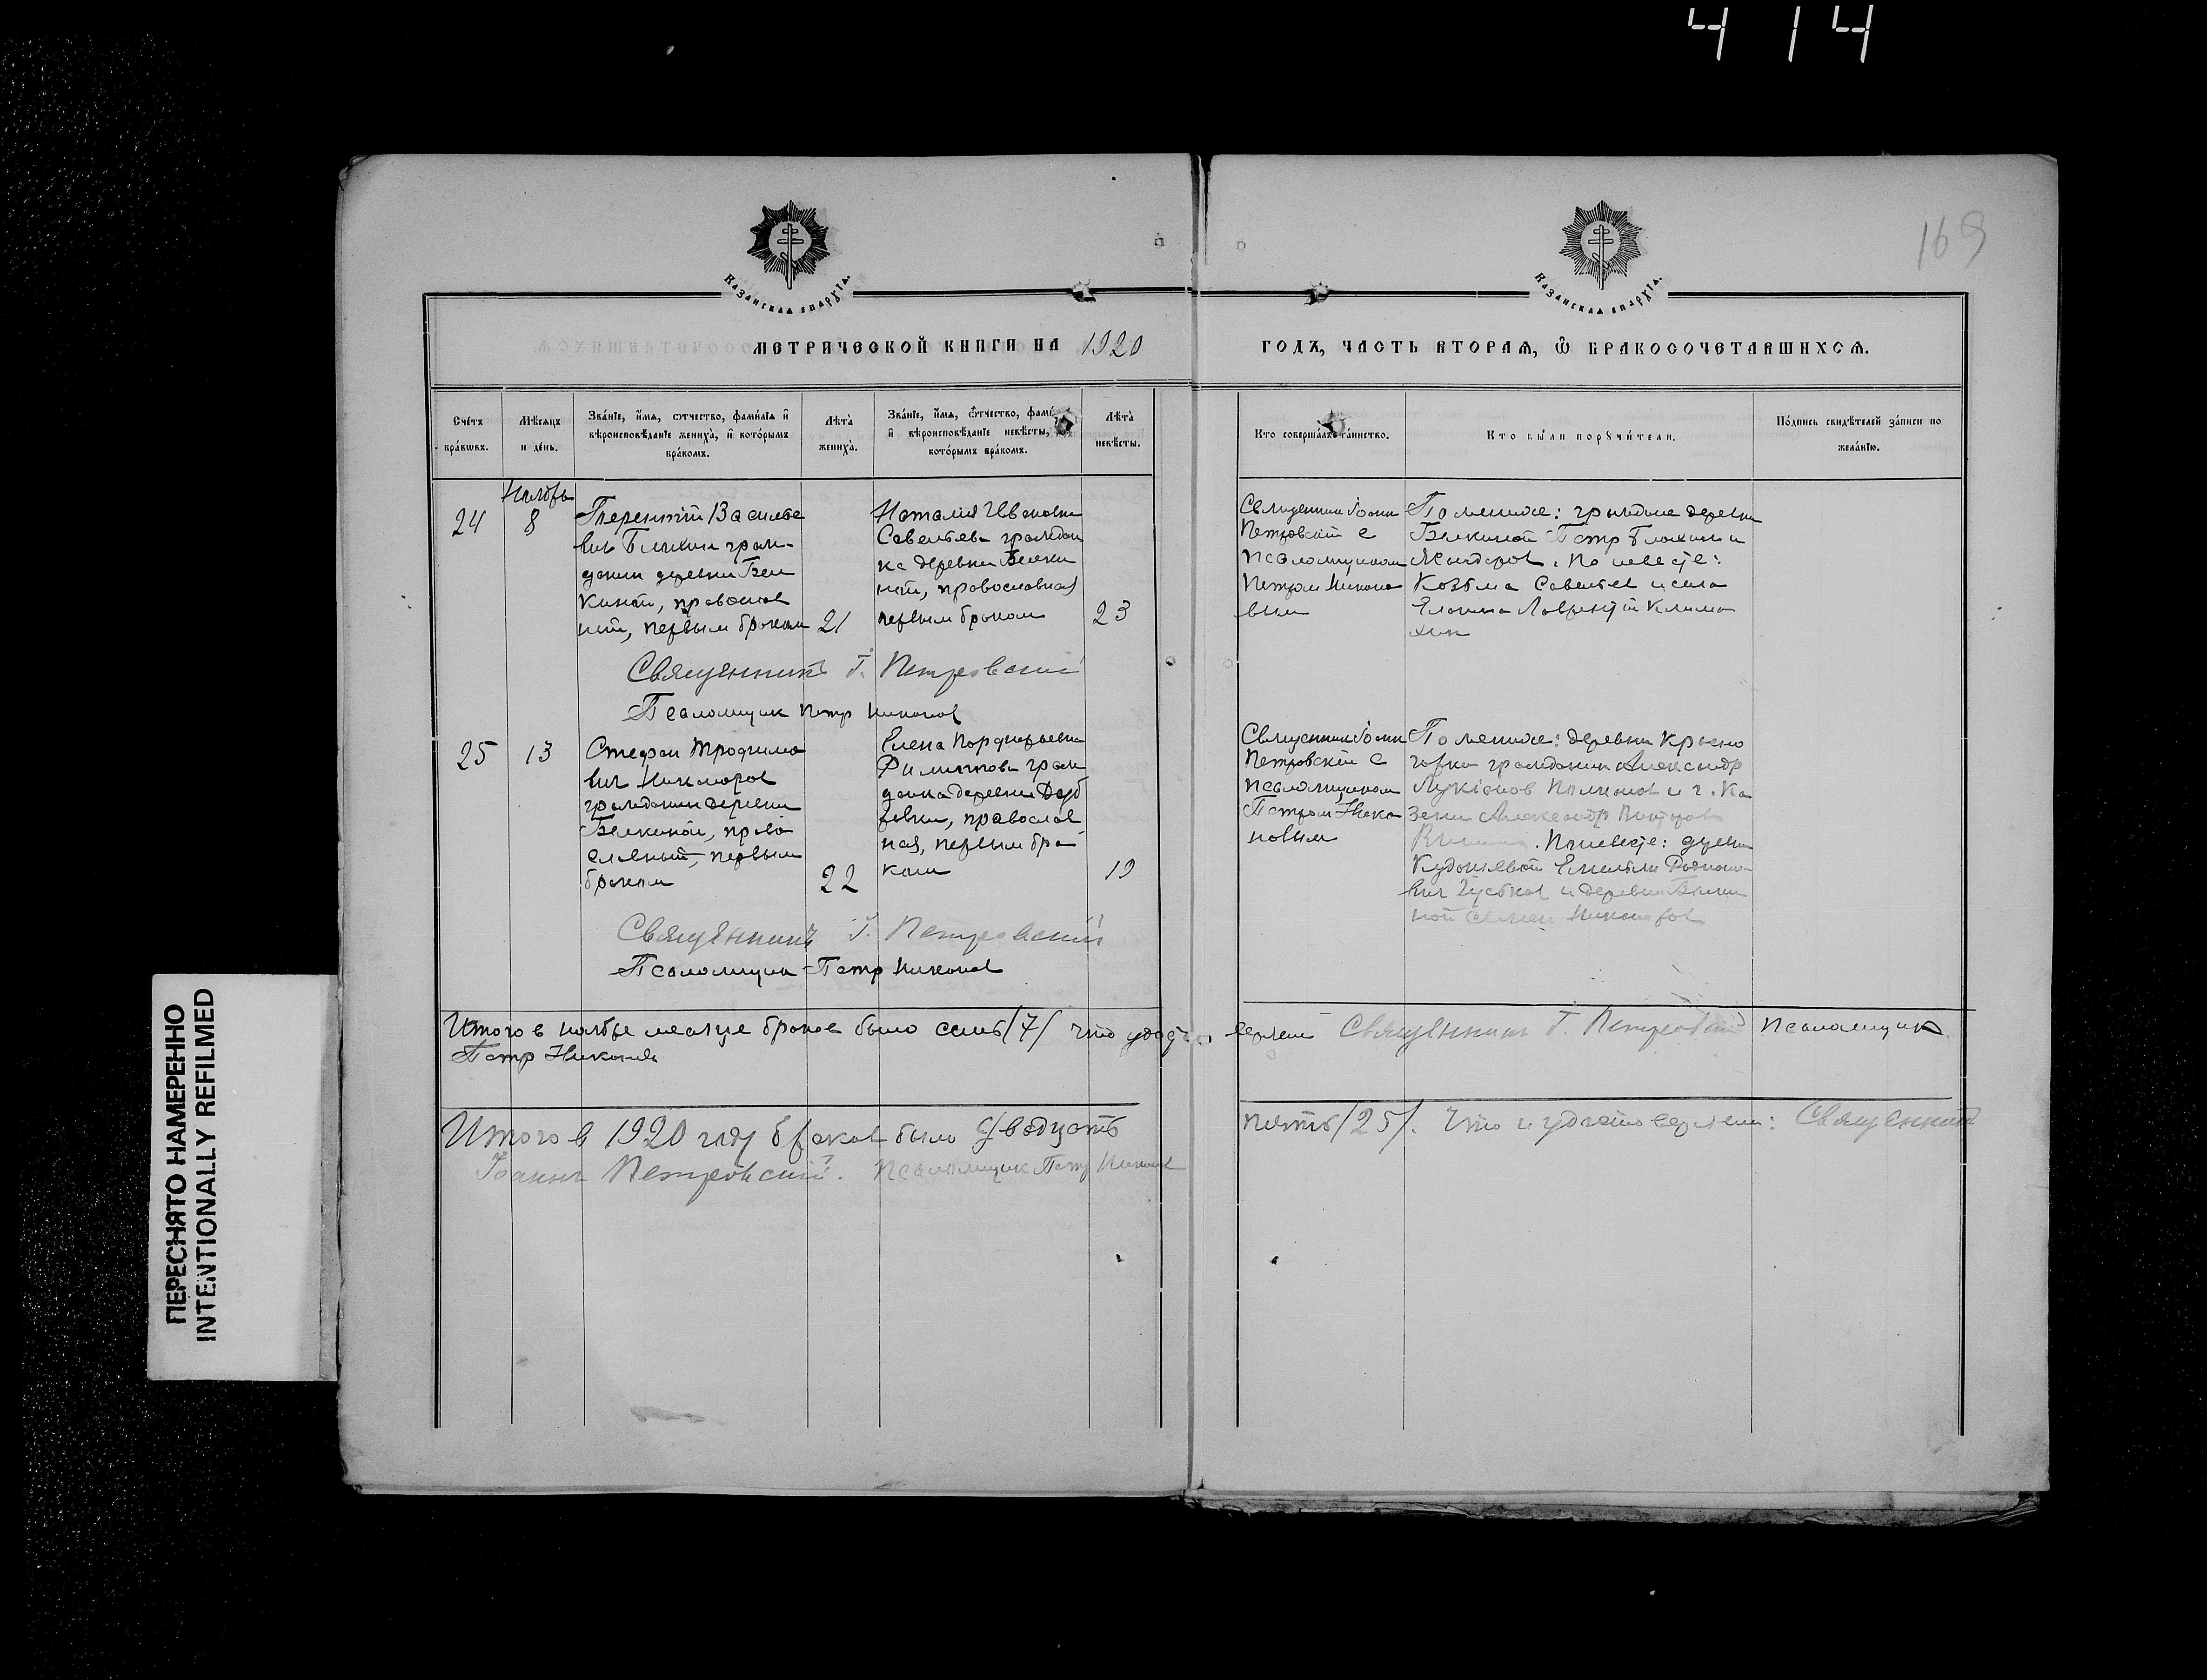 4 14
169
Казанская епархїа.
Казанская епархїа.
МЕТРИЧЕСКОЙ КНИГИ НА 1920
ГОДЪ, ЧАСТЬ ВТОРАѦ, Ѡ БРАКОСОЧЕТАВШИХСѦ.
Сче́тъ бра́кѡвъ.
Мѣ́сѧцъ и де́нь.
Зва́нїе, и́мѧ, ѻтчество, фами́лїѧ и вѣроисповѣ́данїе жениха̀, и кото́рымъ бра́комъ.
Лѣта̀ жениха̀.
Зва́нїе, и́мѧ, ѻ҆тчество, фам и вѣроисповѣ́данїе невѣ́сты, кото́рымъ бра́комъ.
Лѣта̀ невѣ́сты.
Кто соверша́лъ та́инство.
Кто бы́ли порꙋчи́тели.
По́дпись свидѣ́телей за́писи по жела́нїю.
Ноября
24
8
Терентій Василье
вич Блохин граж
данин деревни Бел
киной, православ
ный, первым браком
21
Наталия Ивановна
Савельева граждан
ка деревни Белки
ной, православная
первым браком
23
Священник Іоанн
Петровскій с
псаломщиком
Петром Никоно
вым
По женихе: граждане деревни
Белкиной Петр Блохин и
По невесте:
Козьма Савельев и села
Лаврентій Клима
хин
Священникъ І. Петровский
Псаломщик Петр Никонов
25
13
Стефан Трофимо
вич Никаноров
гражданин деревни
Белкиной, право
славный, первым
браком
22
Елена Порфирьевна
Филиппова граж
данка деревни
православ
ная, первым бра
ком
19
Священник Іоанн
Петровскій с
псаломщиком
Петром Нико
новым
По женихе: деревни Красно
горки гражданин Александр
и г. Ка
зани Александр
По невесте: деревни
и деревни Белки
ной Семен Никаноров
Священникъ І. Петровский
Псаломщик Петр Никонов
Итого в ноябре месяце браков было семь /7/ что удосто веряем Священник І. Петровский псаломщик
Петр Никонов
Итого в 1920 году браков было двадцать пять /25/. Что и удостоверяем: Священник
Іоаннъ Петровский. Псаломщик Петр Никонов
ПЕРЕСНЯТО НАМЕРЕННО
INTENTIONALLY REFILMED